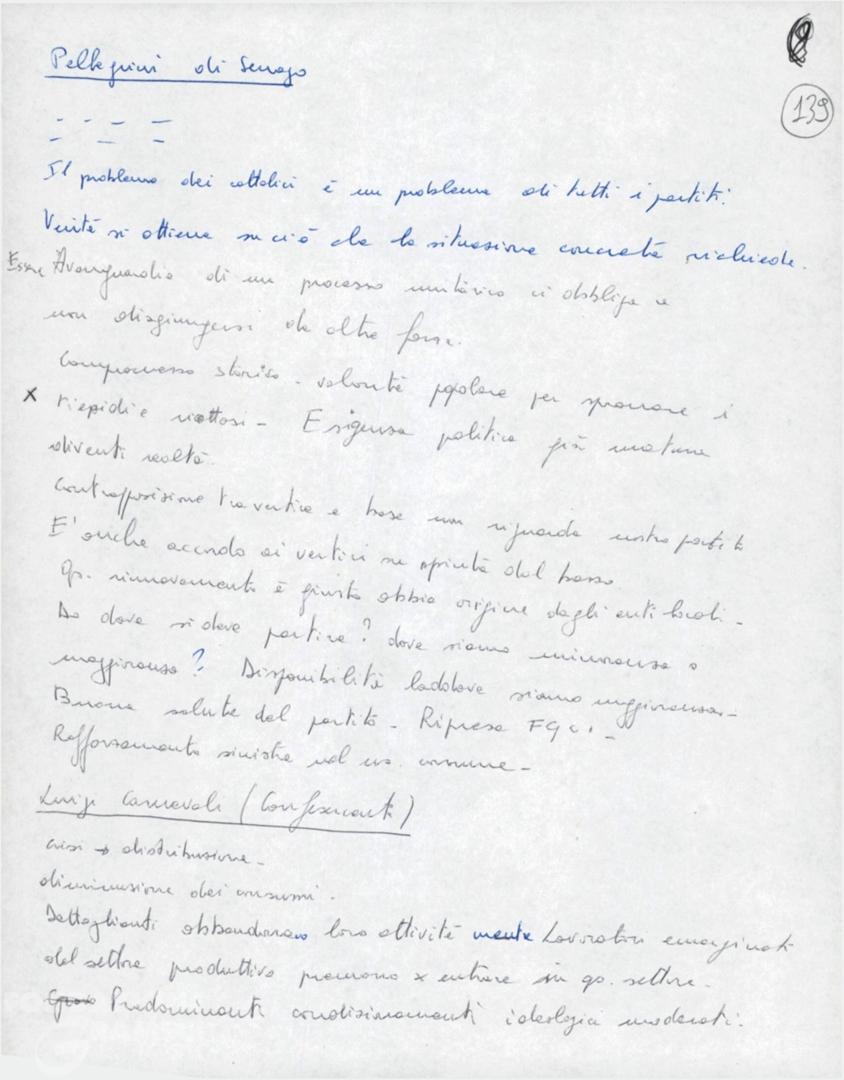 139
Pellegrini di Senago
Il problema dei cattolici è un problema di tutti i partiti.
Unità si ottiene su ciò che la situazione concreta richiede.
Essere Avanguardia di un processo unitario ci obbliga a
non disgiungersi da altre forze.
Compromesso storico - volontà popolare per spronare i
x tiepidi e riottosi - Esigenza politica già matura
diventi realtà.
Contrapposizione tra vertice e base non riguarda nostro partito
E' anche accordo ai vertici su spinta dal basso.
Qs. rinnovamento è giusto abbia origine dagli enti locali -
Da dove si deve partire? dove siamo minoranza o
maggioranza? Disponibilità laddove siamo maggioranza -
Buona salute del partito - Ripresa FGCI -
Rafforzamento sinistra nel ns. comune -
Luigi Carnevali (Confesercenti)
crisi → distribuzione -
diminuzione dei consumi.
Dettaglianti abbandonano loro attività mentre Lavoratori emarginati
dal settore produttivo premono x entrare in qs. settore.
Predominanti condizionamenti ideologici moderati.